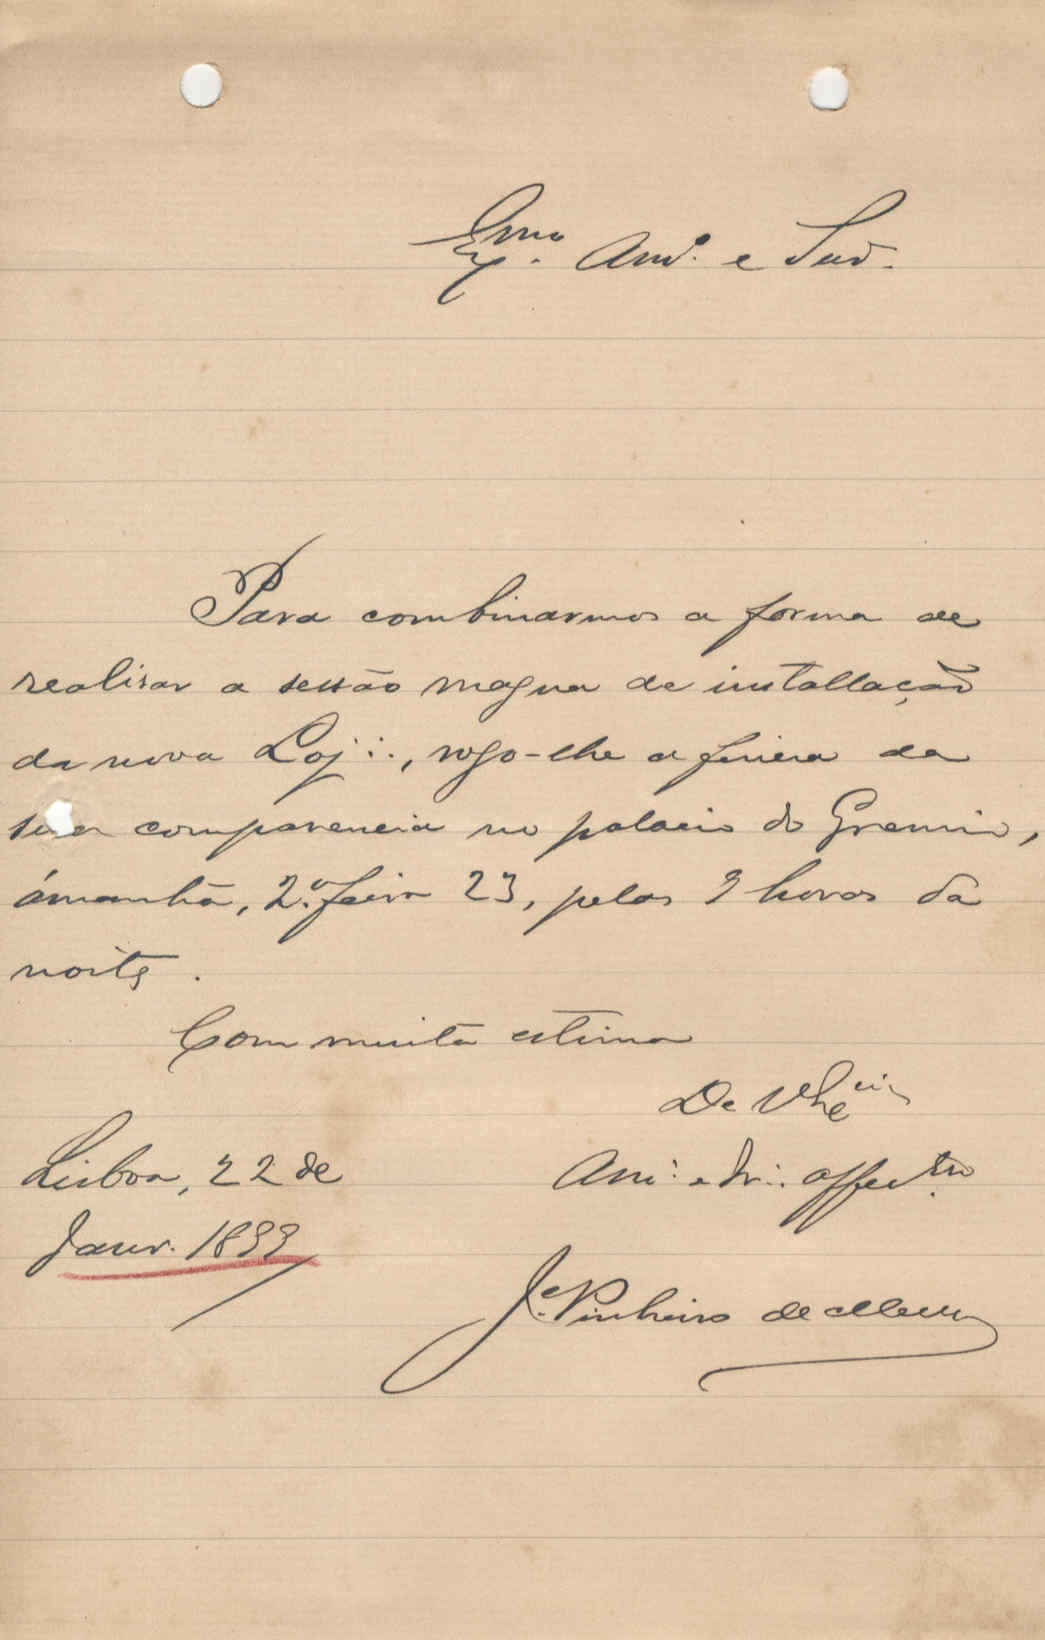 Exmo. Am.º e Snr.
Para combinarmos a forma de
realisar a sessão magna de installação
da nova Loj∴, rogo-lhe a fineza da
sua comparencia no palacio do Gremio,
ámanhã, 2.ª feira 23, pelas 9 horas da
noite.
Com muita estima
De V. Ex.cia
Lisboa, 22 de
Am.º e Ir∴ affect.mo
Janr. 1899
J.e Pinheiro de Mello